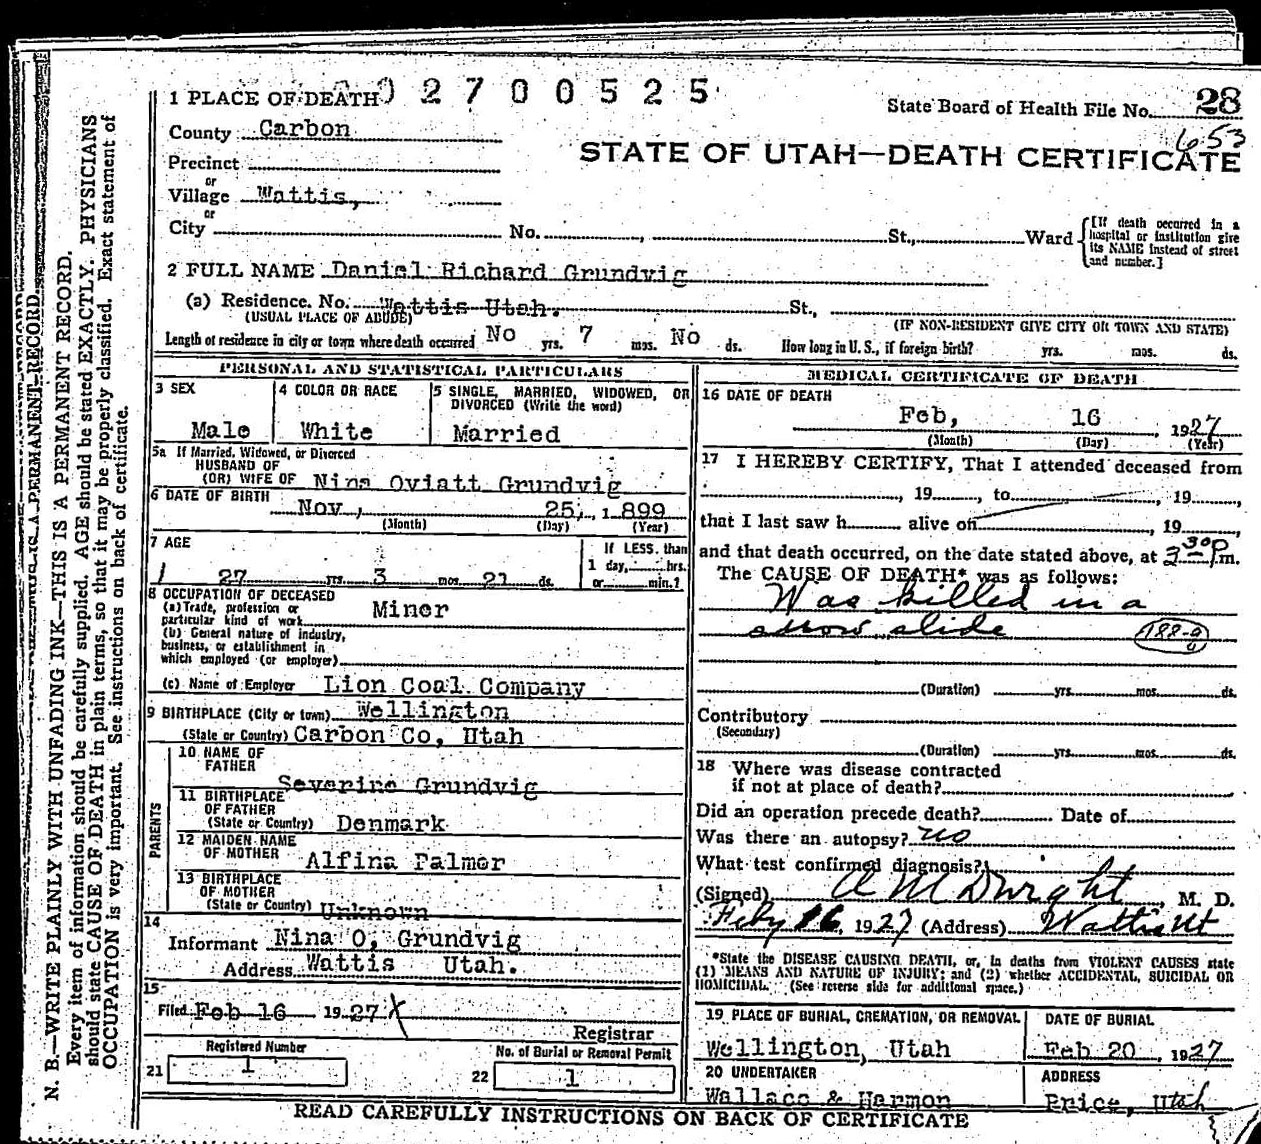 N. B.—WRITE PLAINLY WITH UNFADING INK—THIS IS A PERMANENT RECORD.
Every item of information should be carefully supplied. AGE should be stated EXACTLY. PHYSICIANS
should state CAUSE OF DEATH in plain terms, so that it may be properly classified. Exact statement of
OCCUPATION is very important. See instructions on back of certificate.
1 PLACE OF DEATH 2700525
State Board of Health File No. 28
653
County Carbon
STATE OF UTAH—DEATH CERTIFICATE
Precinct
or
Village Wattis,
or
City No. , St., Ward
[If death occurred in a
hospital or institution give
its NAME instead of street
and number.]
2 FULL NAME Daniel Richard Grundvig
(a) Residence. No. Wattis Utah. St.,
(USUAL PLACE OF ABODE) (IF NON-RESIDENT GIVE CITY OR TOWN AND STATE)
Length of residence in city or town where death occurred No yrs. 7 mos. No ds. How long in U. S., if foreign birth? yrs. mos. ds.
PERSONAL AND STATISTICAL PARTICULARS
3 SEX
Male
4 COLOR OR RACE
White
5 SINGLE, MARRIED, WIDOWED, OR
DIVORCED (Write the word)
Married
5a If Married, Widowed, or Divorced
HUSBAND OF
(OR) WIFE OF Nina Oviatt Grundvig
6 DATE OF BIRTH
Nov, 25, 1899
(Month) (Day) (Year)
7 AGE
27 yrs. 3 mos. 21 ds.
If LESS than
1 day, hrs.
or min.?
8 OCCUPATION OF DECEASED
(a) Trade, profession or
particular kind of work Miner
(b) General nature of industry,
business, or establishment in
which employed (or employer)
(c) Name of Employer Lion Coal Company
9 BIRTHPLACE (City or town) Wellington
(State or Country) Carbon Co, Utah
PARENTS
10 NAME OF
FATHER
Severine Grundvig
11 BIRTHPLACE
OF FATHER
(State or Country) Denmark
12 MAIDEN NAME
OF MOTHER Alfina Palmer
13 BIRTHPLACE
OF MOTHER
(State or Country) Unknown
14
Informant Nina O, Grundvig
Address Wattis Utah.
15
Filed Feb 16 1927 X
Registrar
Registered Number
21 1
No. of Burial or Removal Permit
22 1
MEDICAL CERTIFICATE OF DEATH
16 DATE OF DEATH
Feb, 16, 1927
(Month) (Day) (Year)
17 I HEREBY CERTIFY, That I attended deceased from
, 19 , to , 19 ,
that I last saw h alive on , 19
and that death occurred, on the date stated above, at 3 30 P.m.
The CAUSE OF DEATH* was as follows:
Was killed in a
snow slide 188-a
(Duration) yrs. mos. ds.
Contributory
(Secondary)
(Duration) yrs. mos. ds.
18 Where was disease contracted
if not at place of death?
Did an operation precede death? Date of
Was there an autopsy? no
What test confirmed diagnosis?
(Signed) A M Dwight, M. D.
Feby 16, 1927 (Address) Wattis Ut
*State the DISEASE CAUSING DEATH, or, in deaths from VIOLENT CAUSES state
(1) MEANS AND NATURE OF INJURY; and (2) whether ACCIDENTAL, SUICIDAL OR
HOMICIDAL. (See reverse side for additional space.)
19 PLACE OF BURIAL, CREMATION, OR REMOVAL
Wellington, Utah
DATE OF BURIAL
Feb 20, 1927
20 UNDERTAKER
Wallace & Harmon
ADDRESS
Price, Utah
READ CAREFULLY INSTRUCTIONS ON BACK OF CERTIFICATE